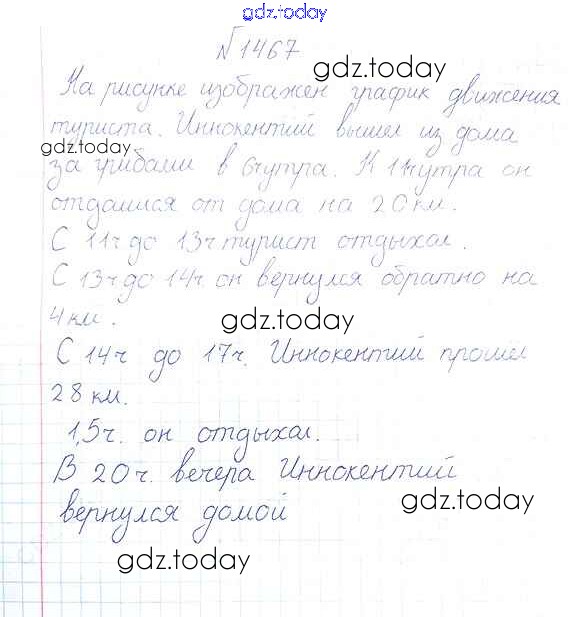 gdz.today
№1467
gdz.today
На рисунке изображен график движения
туриста. Иннокентий вышел из дома
gdz.today
за грибами в 6ч утра. К 11ч утра он
отдалился от дома на 20 км.
С 11ч до 13ч турист отдыхал.
С 13ч до 14ч он вернулся обратно на
4 км.
gdz.today
С 14ч до 17ч. Иннокентий прошел
28 км.
1,5ч. он отдыхал.
В 20ч. вечера Иннокентий
gdz.today
вернулся домой
gdz.today